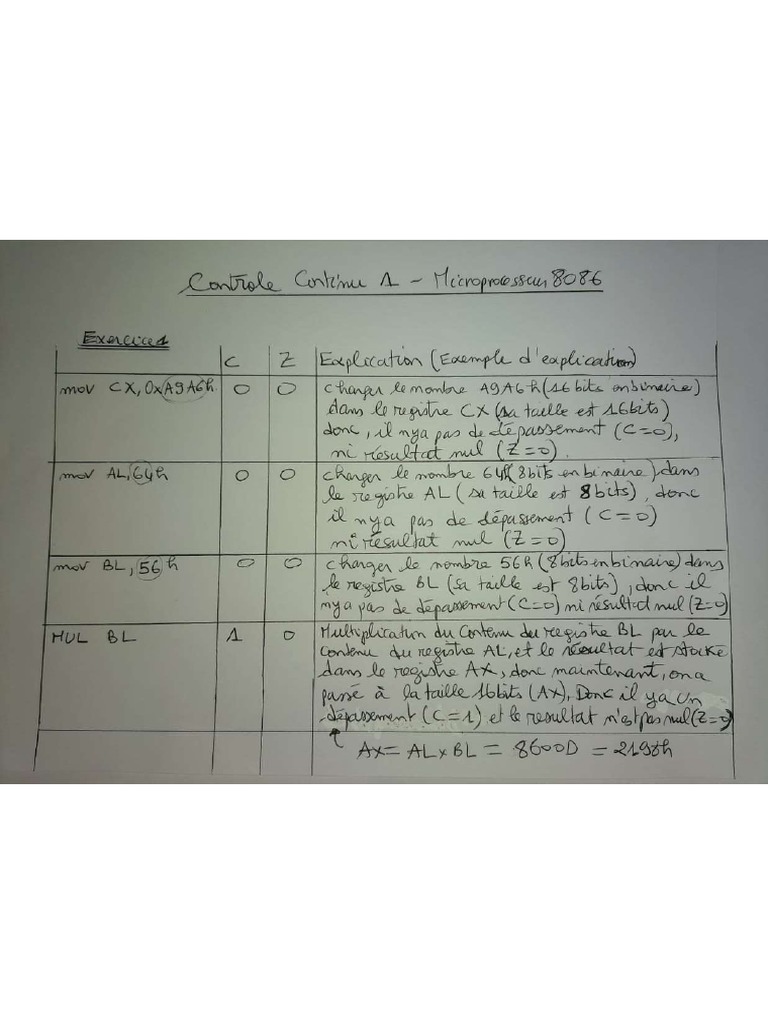 Controle Continu 1 - Microprocesseur 8086
Exercice 1
C Z Explication (Exemple d'explication)
mov CX, 0xA9A6h 0 0 charger le nombre A9A6h (16 bits en binaire)
dans le registre CX (sa taille est 16 bits)
donc, il n'ya pas de dépassement (C=0),
ni résultat nul (Z=0).
mov AL, 64h 0 0 charger le nombre 64h (8bits en binaire) dans
le registre AL (sa taille est 8bits), donc
il n'ya pas de dépassement (C=0)
ni résultat nul (Z=0)
mov BL, 56h 0 0 charger le nombre 56h (8bits en binaire) dans
le registre BL (sa taille est 8bits), donc il
n'ya pas de dépassement (C=0) ni résultat nul (Z=0)
MUL BL 1 0 Multiplication du contenu du registre BL par le
contenu du registre AL, et le résultat est stocké
dans le registre AX, donc maintenant, on a
passé à la taille 16bits (AX). Donc il ya un
dépassement (C=1) et le resultat n'est pas nul (Z=0)
AX = AL x BL = 8600D = 2198h